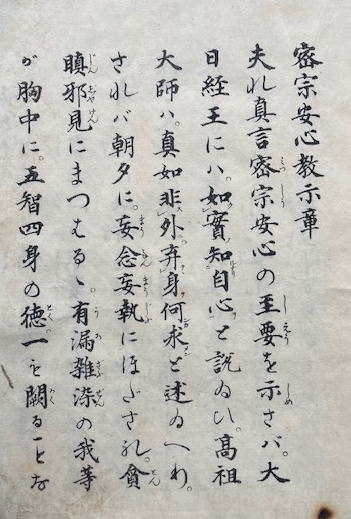 密宗安心教示章
夫れ真言密宗安心の至要を示さバ。大
日経王にハ。如實知自心と説ゐひ。高祖
大師ハ。真如非外弃身何求と述ゐへり。
されバ朝夕に。妄念妄執にほだされ。貪
瞋邪見にまつはるゝ。有漏雑染の我等
が胸中に。五智四身の徳一も闕ることな